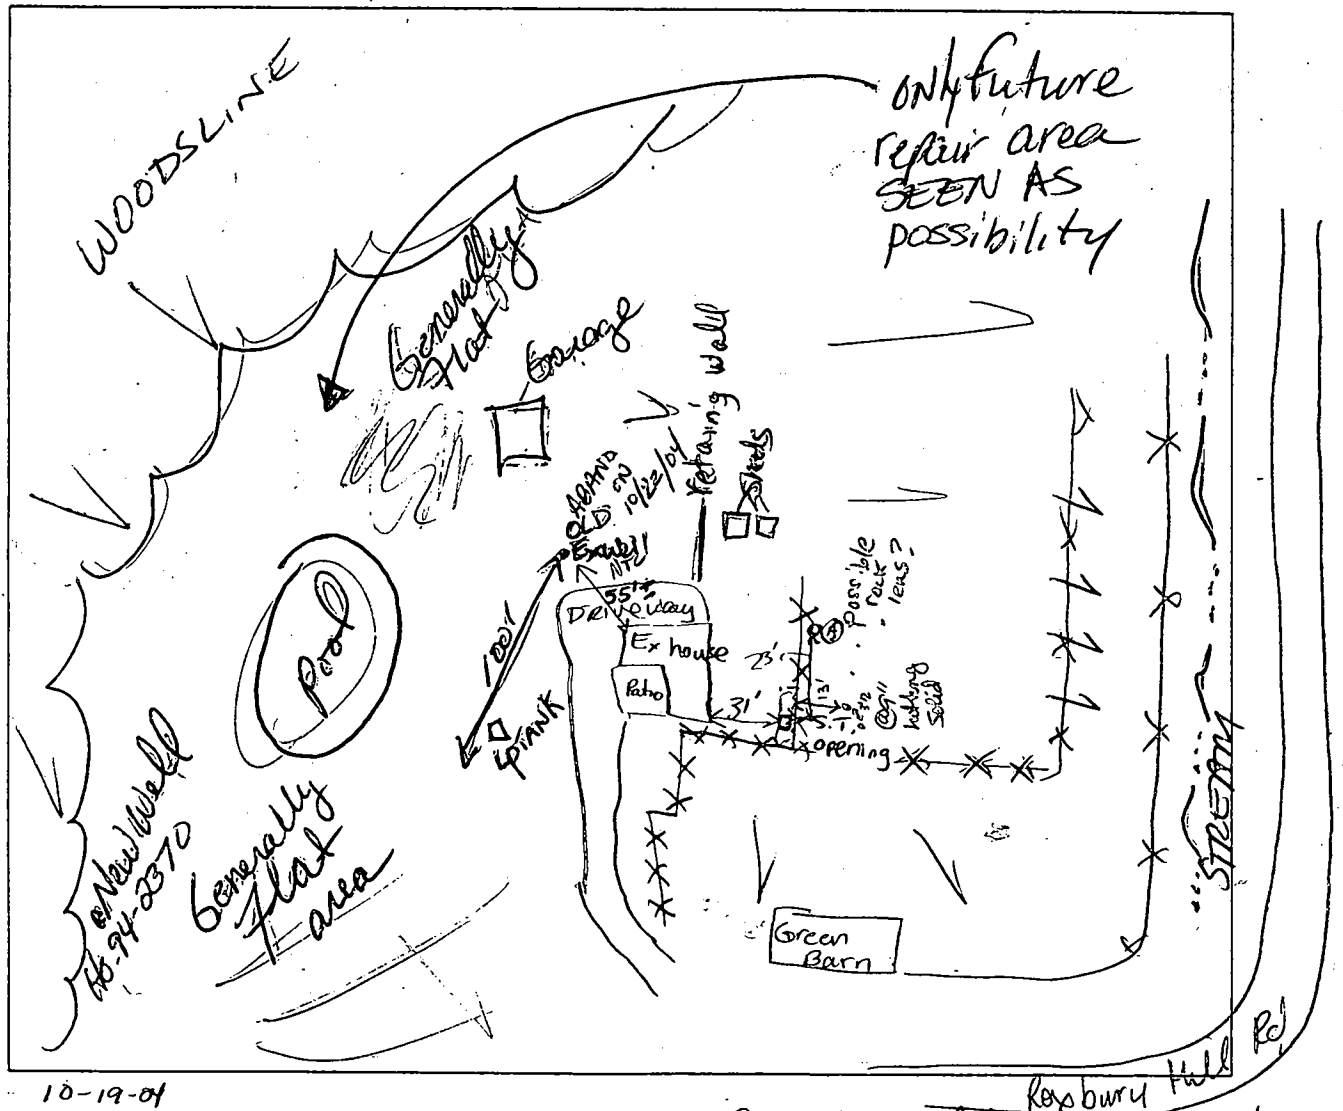 WOODSLINE
only future
repair area
SEEN AS
possibility
Generally
Flat
Garage
retaining wall
Sheds
ABAND
ON
10/22/04
OLD
Ex well
55'±
DRiveway
Ex house
Patio
Possible
rock
lens?
23'
13'
31'
@9"
nothing
solid
opening
100'
Pool
New Well
HO-94-2370
Generally
Flat
area
Green
Barn
STREAM
Roxbury Mill Rd
10-19-04